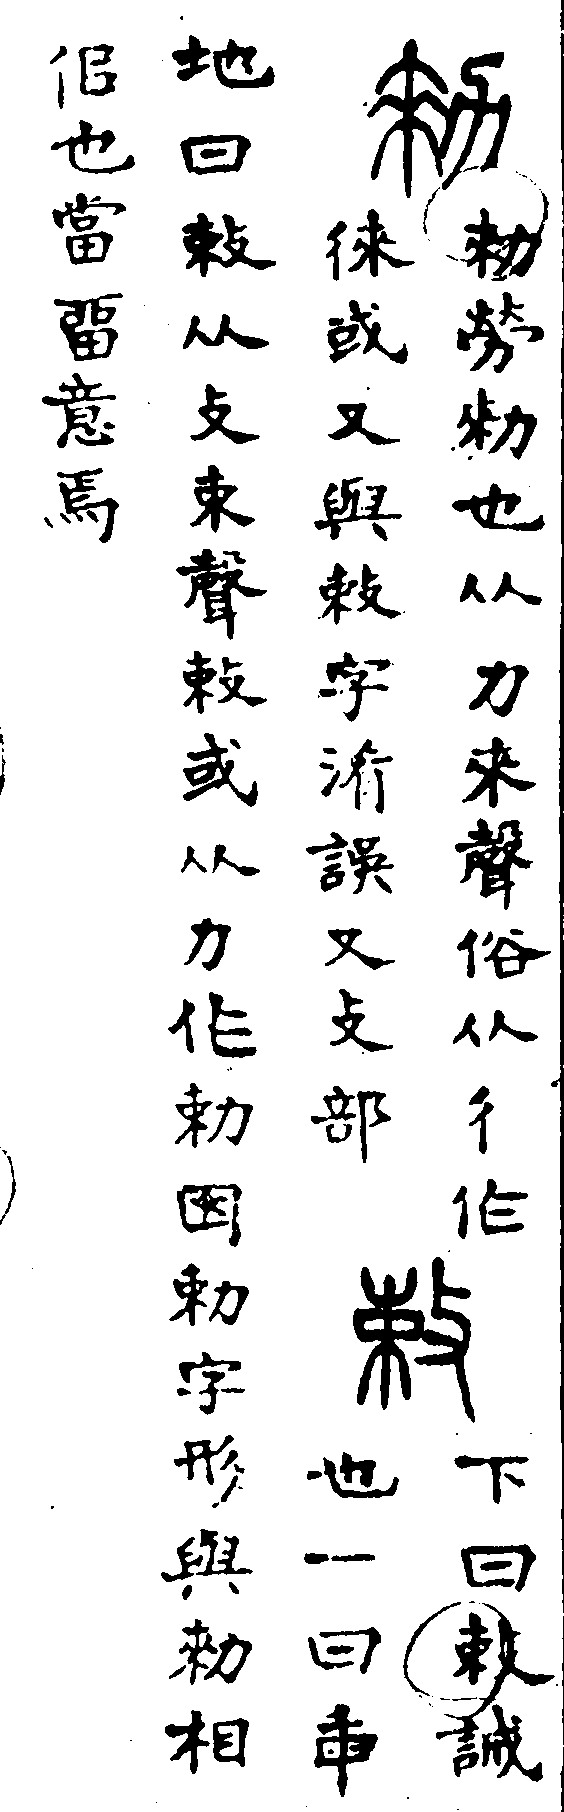 勑
勑勞勑也从力來聲俗从彳作
徠或又與敕字淆誤又攴部
敕
下曰敕誡
也一曰臿
地曰敕从攴束聲敕或从力作勅因勅字形與勑相
佀也當畱意焉